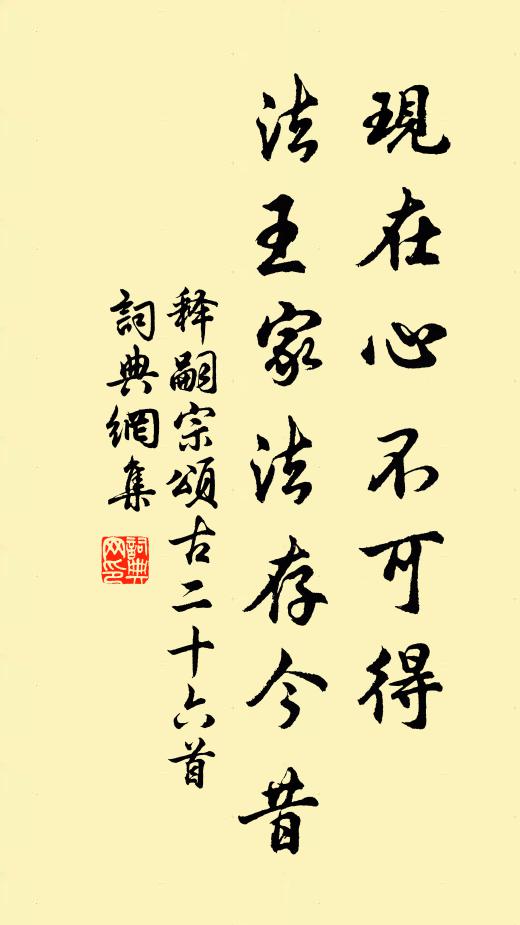 現在心不可得
法王家法存今昔
释嗣宗頌古二十六首
詞典網集
詞典網印